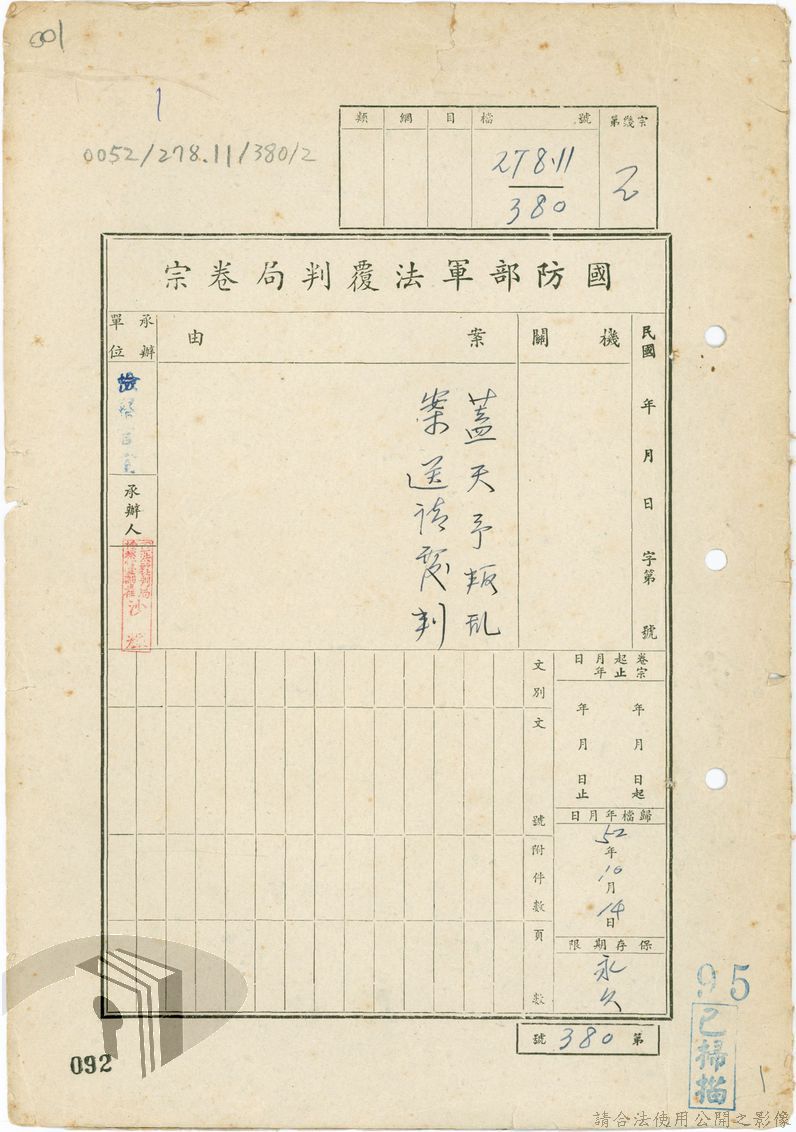 001
1
0052/278.11/380/2
類 綱 目 檔號 第幾宗
278.11
380
國防部軍法覆判局卷宗
民國 年 月 日 字第 號
機關
案由
承辦單位
蓋天予叛乱
案送請覆判
檢察官室
承辦人
卷宗起止年月日
年 月 日起
年 月 日止
歸檔年月日
52年
10月
14日
保存期限
永久
文別
文號
附件數
頁數
第 380 號
95
已掃描
092
1
請合法使用公開之影像